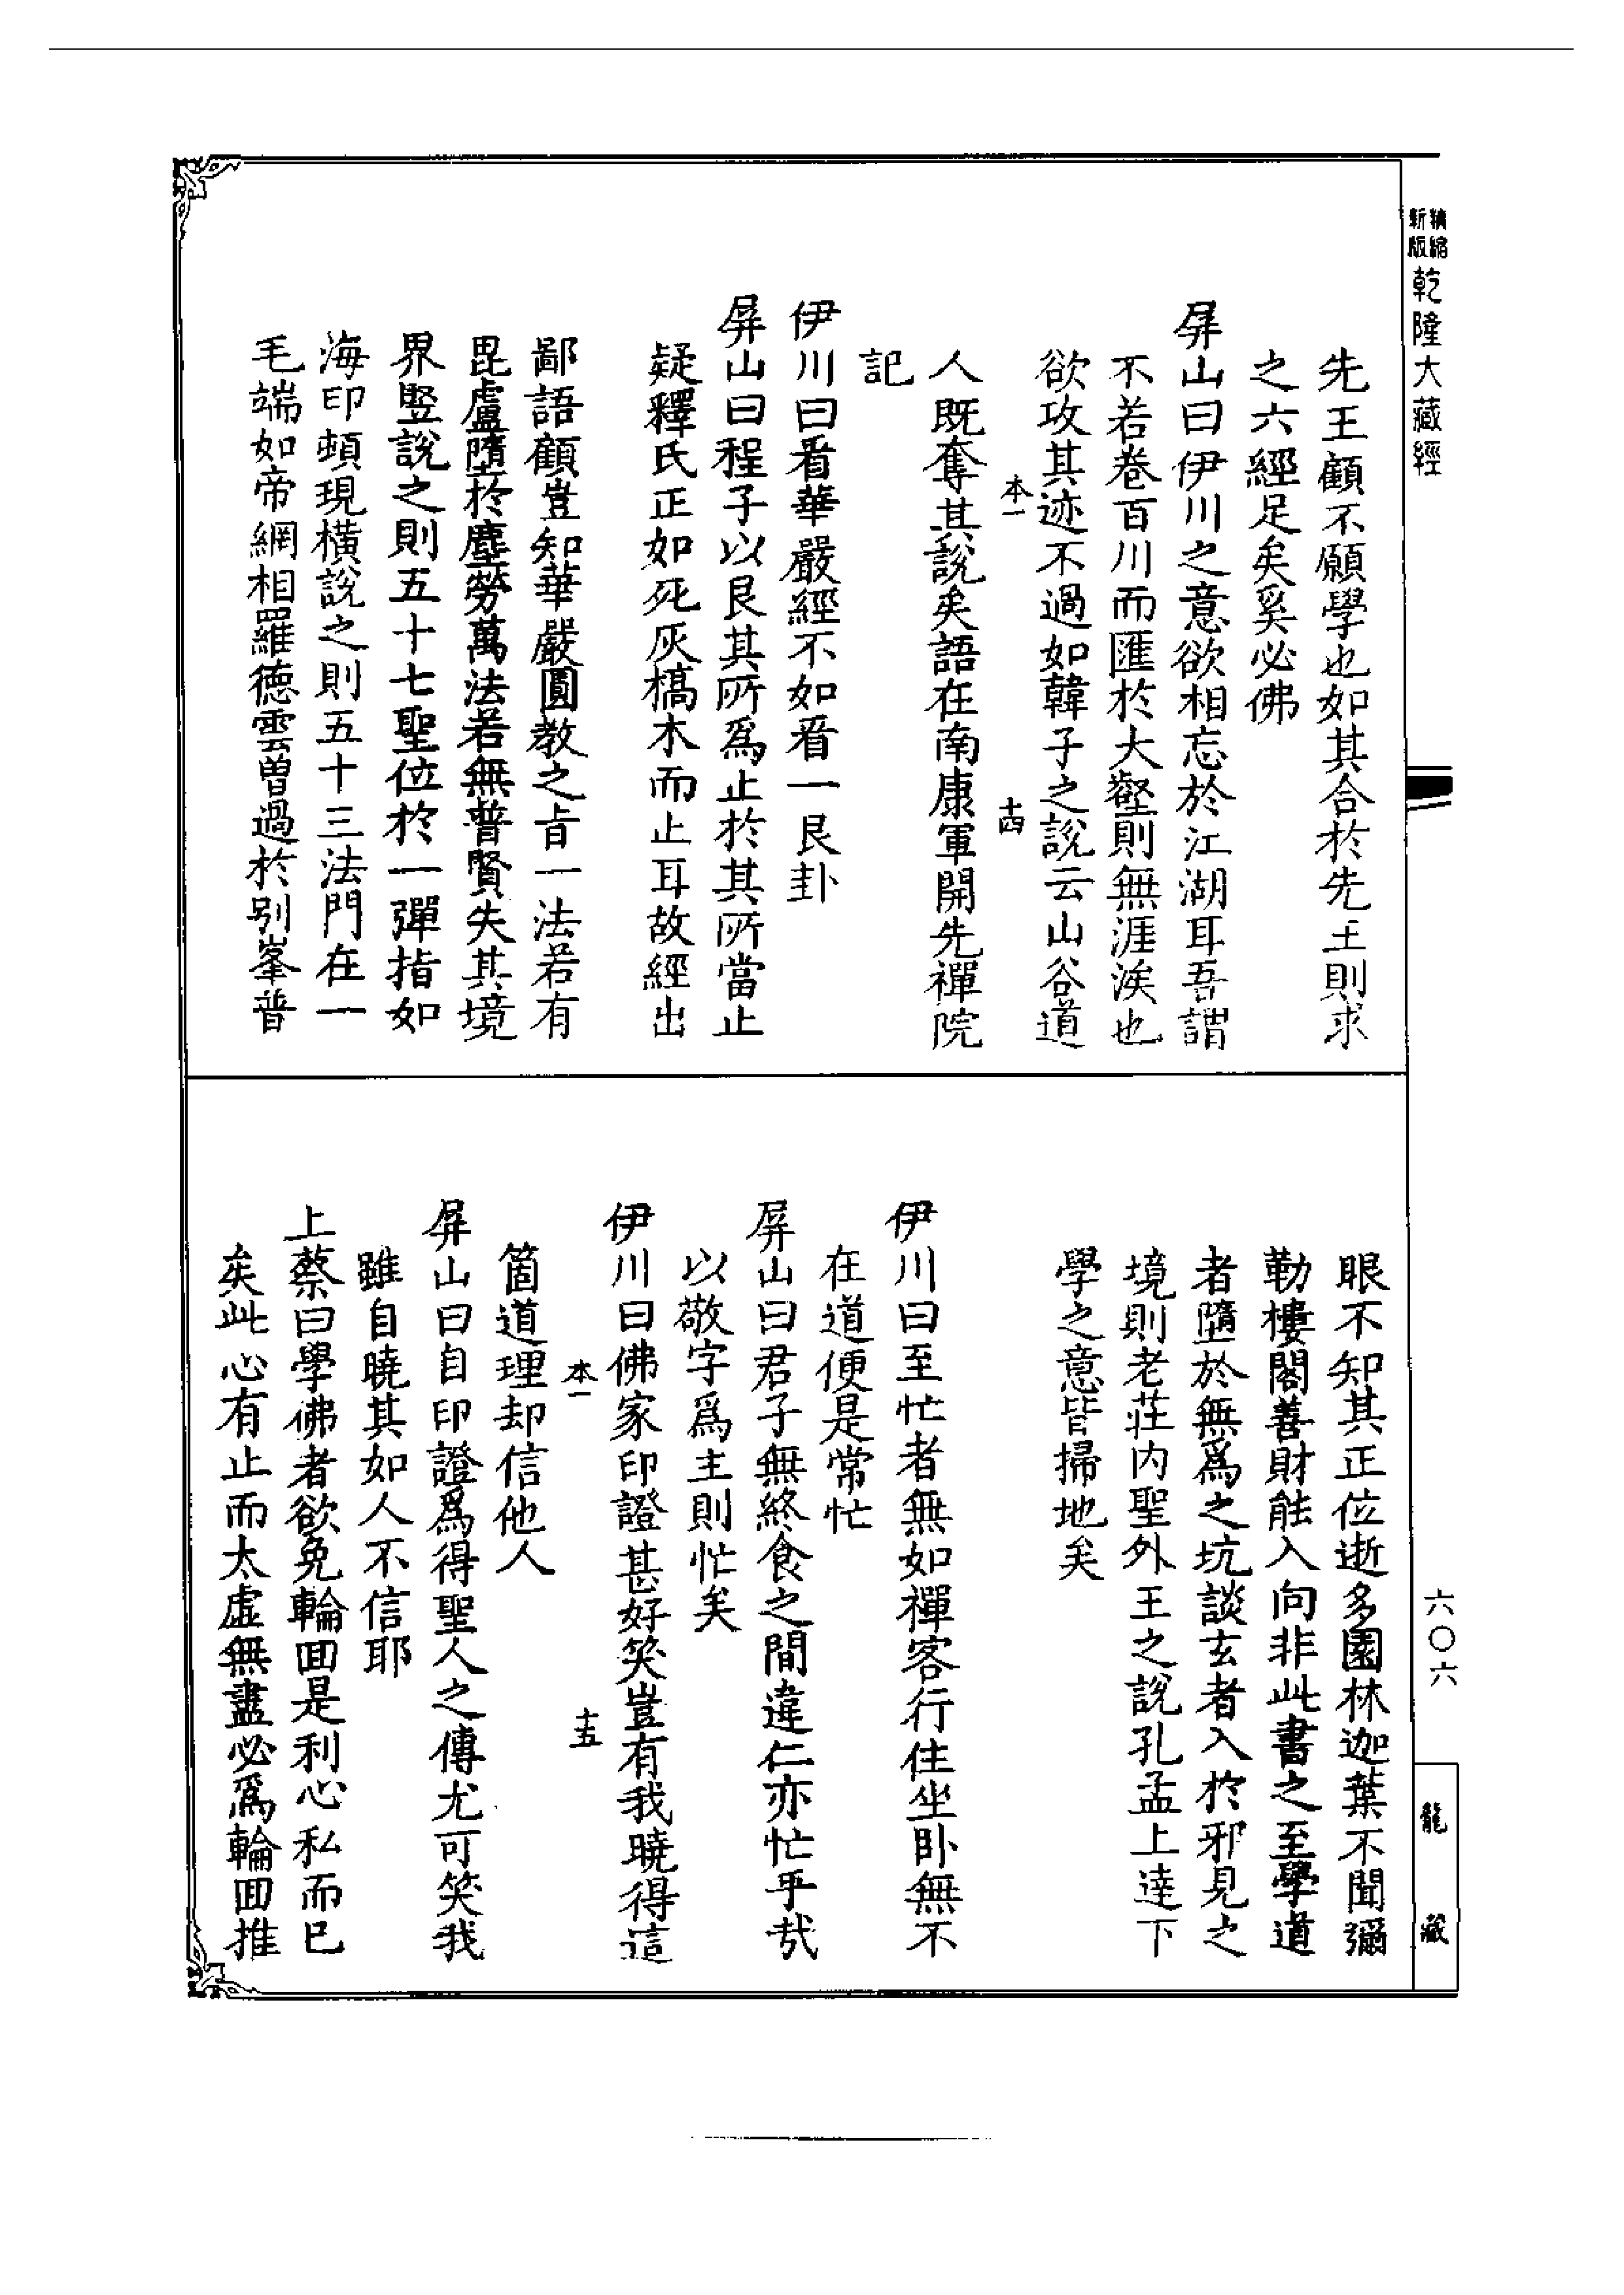 精縮
新版
乾隆大藏經
先王顧不願學也如其合於先王則求
之六經足矣奚必佛
屏山曰伊川之意欲相忘於江湖耳吾謂
不若卷百川而匯於大壑則無涯涘也
欲攻其迹不過如韓子之說云山谷道
本一
十四
人既奪其說矣語在南康軍開先禪院
記
伊川曰看華嚴經不如看一艮卦
屏山曰程子以艮其所為止於其所當止
疑釋氏正如死灰槁木而止耳故經出
鄙語顧豈知華嚴圓教之旨一法若有
毘盧墮於塵勞萬法若無普賢失其境
界竪說之則五十七聖位於一彈指如
海印頓現橫說之則五十三法門在一
毛端如帝網相羅德雲曾過於別峯普
眼不知其正位逝多園林迦葉不聞彌
勒樓閣善財能入向非此書之至學道
者墮於無為之坑談玄者入於邪見之
境則老莊内聖外王之說孔孟上達下
學之意皆掃地矣
伊川曰至忙者無如禪客行住坐卧無不
在道便是常忙
屏山曰君子無終食之間違仁亦忙乎哉
以敬字為主則忙矣
伊川曰佛家印證甚好笑豈有我曉得這
本一
十五
箇道理却信他人
屏山曰自印證為得聖人之傳尤可笑我
雖自曉其如人不信耶
上蔡曰學佛者欲免輪回是利心私而已
矣此心有止而太虛無盡必為輪回推
六〇六
龍藏